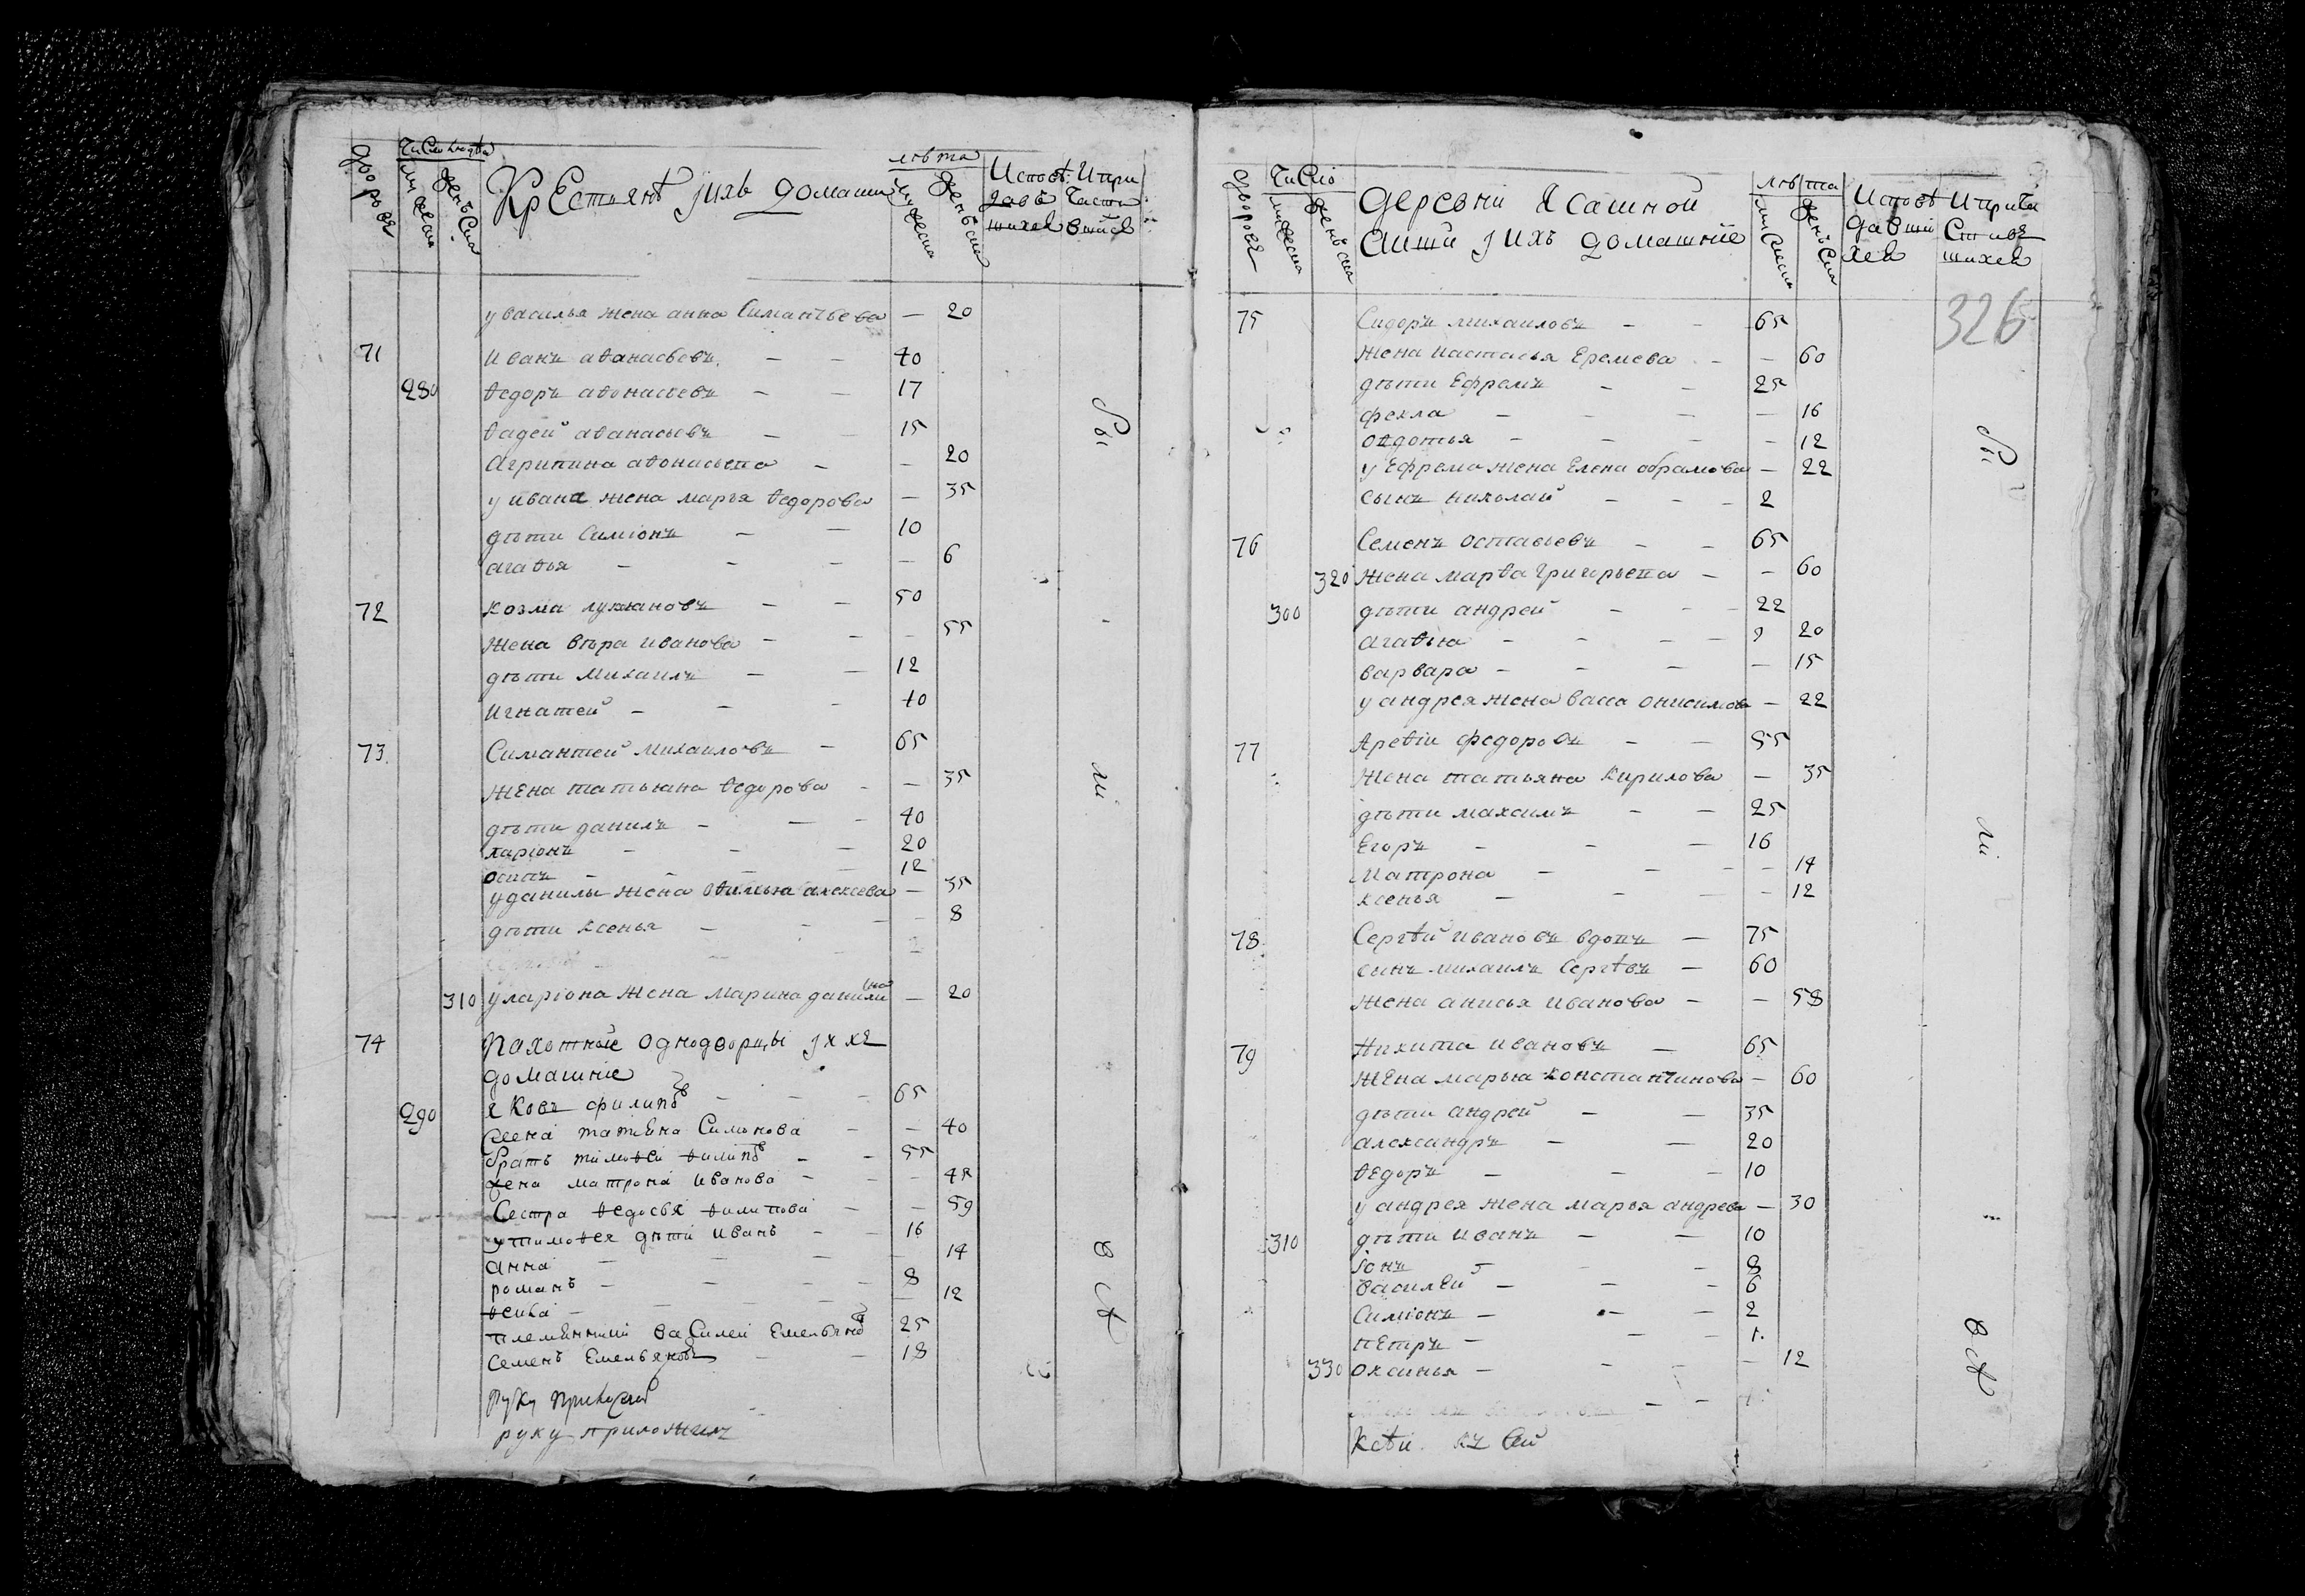 дворовъ
Число людей
мужеска
женъска
Крестьянъ и ихъ домашни
лѣта
мужеска
женъска
Исповѣ
давъ
шихся
И при
части
вшися
у василья жена анна Симантьева — 20
71 Иванъ аѳанасьевъ — — 40
280 ѳедоръ аѳонасьевъ — — 17
ѳадей аѳанасьевъ — — 15
Агрипина аѳонасьева — — 20
у ивана жена марья ѳедорова — 35
дѣти Симіонъ — — 10
агаѳья — — — — 6
72 козма лукьановъ — — 50
жена вѣра иванова — — — 55
дѣти михаилъ — — 12
игнатей — — — 10
73 Симантей михаиловъ — 65
жена татьяна ѳедорова — — 35
дѣти данилъ — — — 40
ларіонъ — — — 20
осипъ — — — 12
у данилы жена алексева — 35
дѣти ксенья — — — — 8
310 у ларіона жена марина данилина — 20
74 Пахотные однодворцы и ихъ
домашніе
290 яковъ филиповъ — — — 65
жена татьяна Симонова — — 40
братъ тимоѳеи ѳилиповъ — — 55
жена матрона иванова — — — 45
Сестра ѳедосья ѳилипова — — 59
у тимоѳея дѣти иванъ — — 16
анна — — — — 14
романъ — — — — 8
— — — — 12
племянники василеи Емельяновъ 25
Семенъ Емельяновъ — — 18
руку приложилъ
руку приложилъ
дворовъ
Число
мужеска
женъска
деревни Ясашной
и ихъ домашніе
лѣта
мужеска
женъска
Исповѣ
давши
хся
И прича
стивъ
шихся
326
75 Сидоръ михаиловъ — — 65
жена настасья Еремева — — 60
дѣти Ефремъ — — 25
фекла — — — — 16
овдотья — — — — 12
у Ефрема жена Елена абрамова — 22
сынъ николай — — — 2
76 Семенъ остаѳьевъ — — 65
320 жена марѳа григорьева — — 60
300 дѣти андрей — — — 22
агаѳья — — — — 20
варвара — — — — 15
у андрея жена васса онисимова — 22
77 Ареѳіи федоровъ — — 55
жена татьяна кирилова — 35
дѣти максимъ — — 25
Егоръ — — — 16
Матрона — — — — 14
ксенья — — — — 12
78 Сергѣй ивановъ вдовъ — 75
сынъ михаилъ Сергѣевъ — 60
жена анисья иванова — — 58
79 Никита ивановъ — 65
жена марья константинова — 60
дѣти андрей — — 35
александръ — — 20
ѳедоръ — — — 10
у андрея жена марья андрева — 30
310 дѣти иванъ — — 10
іонъ — — 8
василей — — — 6
Симіонъ — — — 2
петръ — — — 1
330 оксинья — — — 12